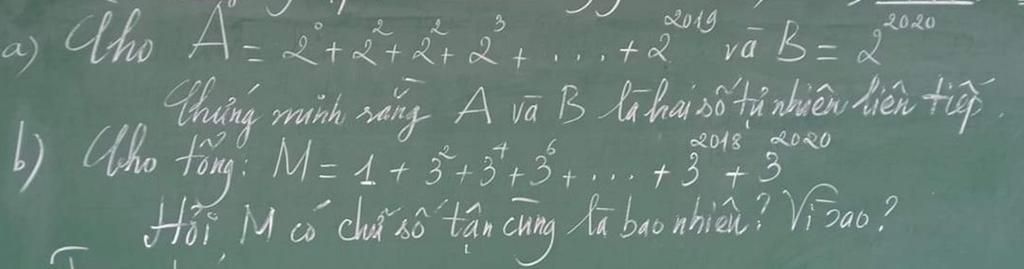 a) Cho A = 2⁰ + 2² + 2² + 2³ + .... + 2²⁰¹⁹ và B = 2²⁰²⁰
Chứng minh rằng A và B là hai số tự nhiên liên tiếp.
b) Cho tổng: M = 1 + 3² + 3⁴ + 3⁶ + .... + 3²⁰¹⁸ + 3²⁰²⁰
Hỏi M có chữ số tận cùng là bao nhiêu? Vì sao?